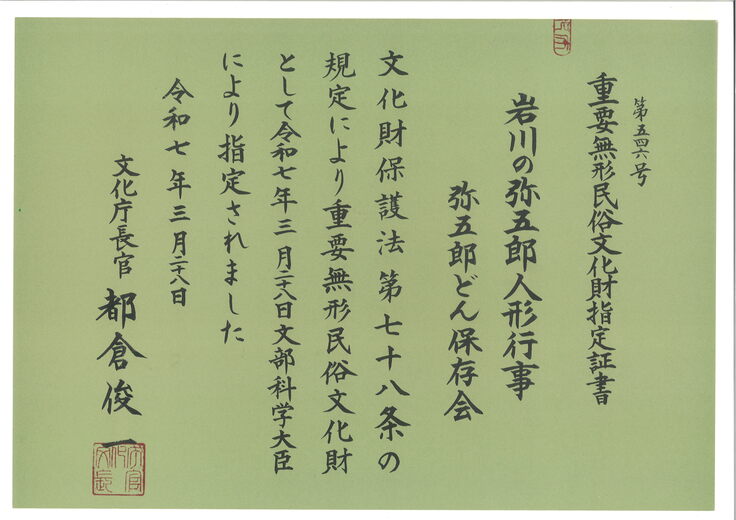 第五四六号
重要無形民俗文化財指定証書
岩川の弥五郎人形行事
弥五郎どん保存会
文化財保護法第七十八条の
規定により重要無形民俗文化財
として令和七年三月二十八日文部科学大臣
により指定されました
令和七年三月二十八日
文化庁長官 都倉俊一